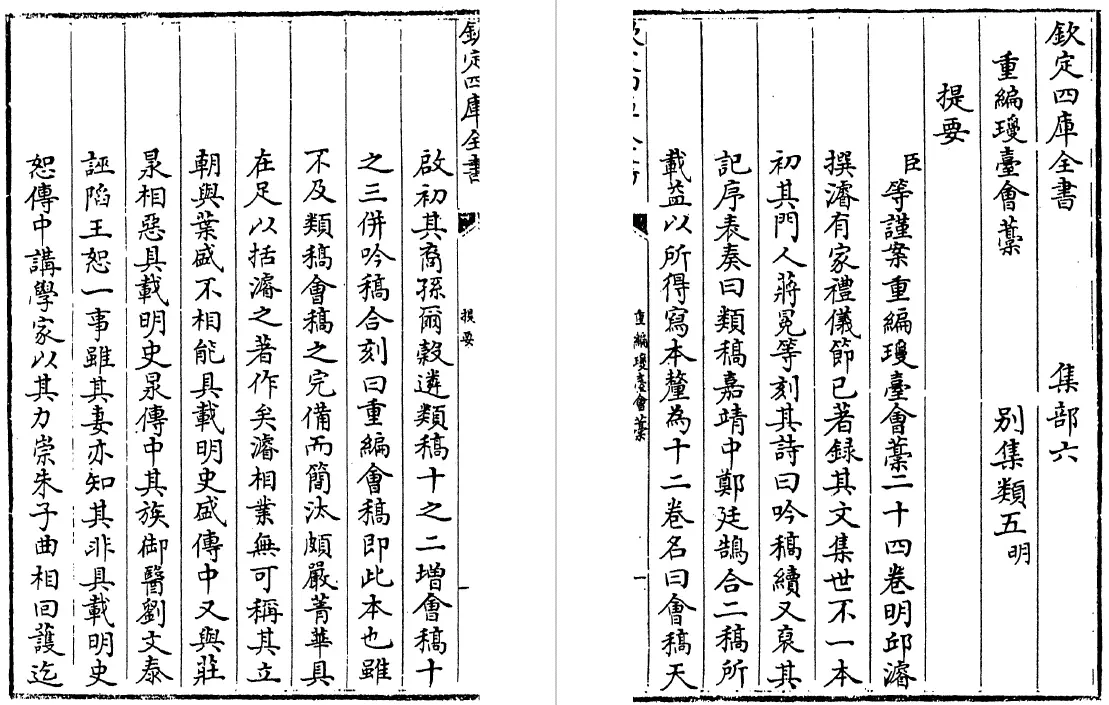 欽定四庫全書 集部六
重編瓊臺會藁 別集類五明
提要
臣等謹案重編瓊臺會藁二十四卷明邱濬
撰濬有家禮儀節已著録其文集世不一本
初其門人蔣冕等刻其詩曰吟稿續又裒其
記序表奏曰類稿嘉靖中鄭廷鵠合二稿所
載益以所得寫本釐為十二卷名曰會稿天
重編瓊臺會藁 一
欽定四庫全書 提要 一
啟初其裔孫爾穀遴類稿十之二增會稿十
之三併吟稿合刻曰重編會稿即此本也雖
不及類稿會稿之完備而簡汰頗嚴菁華具
在足以括濬之著作矣濬相業無可稱其立
朝與葉盛不相能具載明史盛傳中又與莊
㫤相惡具載明史㫤傳中其族御醫劉文泰
誣陷王恕一事雖其妻亦知其非具載明史
恕傳中講學家以其力崇朱子曲相回護迄